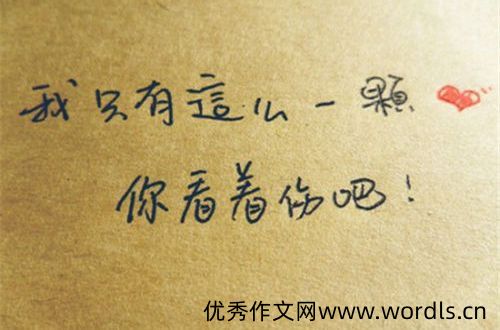 我只有這么一顆❤
你看着伤吧！
优秀作文网www.wordls.cn